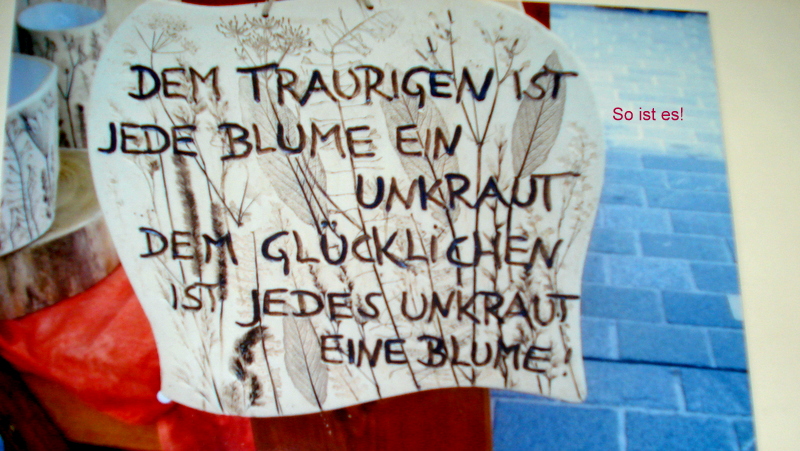 DEM TRAURIGEN IST
JEDE BLUME EIN
UNKRAUT
DEM GLÜCKLICHEN
IST JEDES UNKRAUT
EINE BLUME!
So ist es!